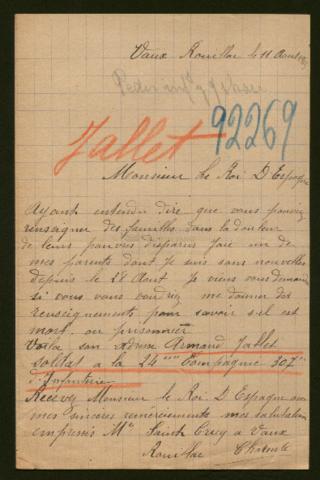 Vaux Rouillac le 11 Aout
92269
Jallet
Monsieur Le Roi D Espagne
Ayant entendu dire que vous pouviez
renseigner des familles dans la douleur
de leurs pauvres disparus J'aie un de
mes parents dont je suis sans nouvelles
depuis le 28 Aout Je viens vous demander
si vous vous voudriez me donner des
renseignements pour savoir s'il est
mort ou prisonnier
Voila son Adresse Armand Jallet
soldat a la 24eme Compagnie 307e
d'Infanterie
Recevez Monsieur le Roi D Espagne avec
mes sincères remerciements mes salutations
empressés Me Sainte Crecq a Vaux
Rouillac Charente